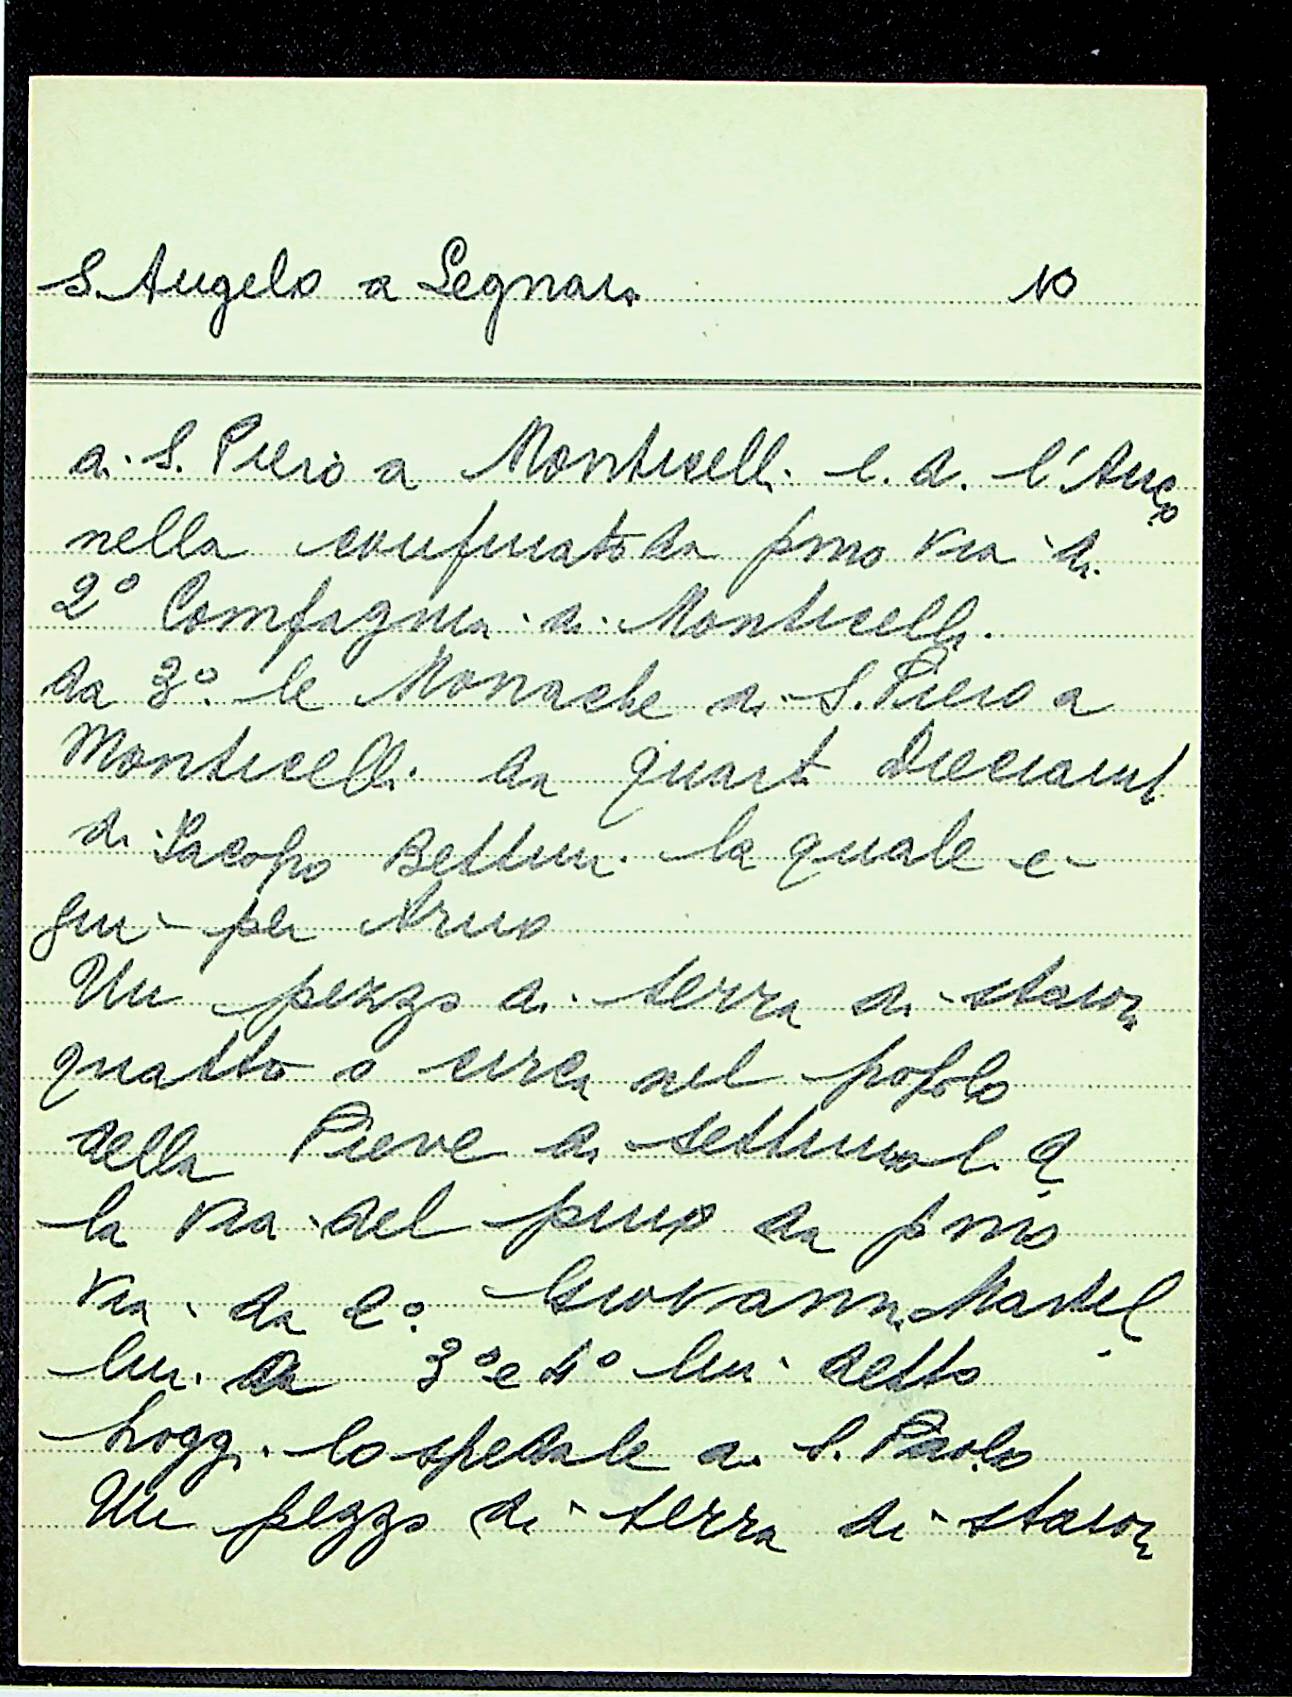 S. Angelo a Legnaio 10
di S. Piero a Monticelli l. d. l'Anco
nella confinato da pmo via di
2º Compagnia di Monticelli
da 3º le Monache di S. Piero a
Monticelli da quart
di Iacopo Bettini la quale e
per Arno
Un pezzo di terra di staiora
quattro o circa nel popolo
della Pieve di Settimo l. d.
la via del pino da pmo
via da 2º Giovanni Martel
lini da 3º e 4º lui detto
hoggi lo spedale di S. Paolo
Un pezzo di terra di staiora